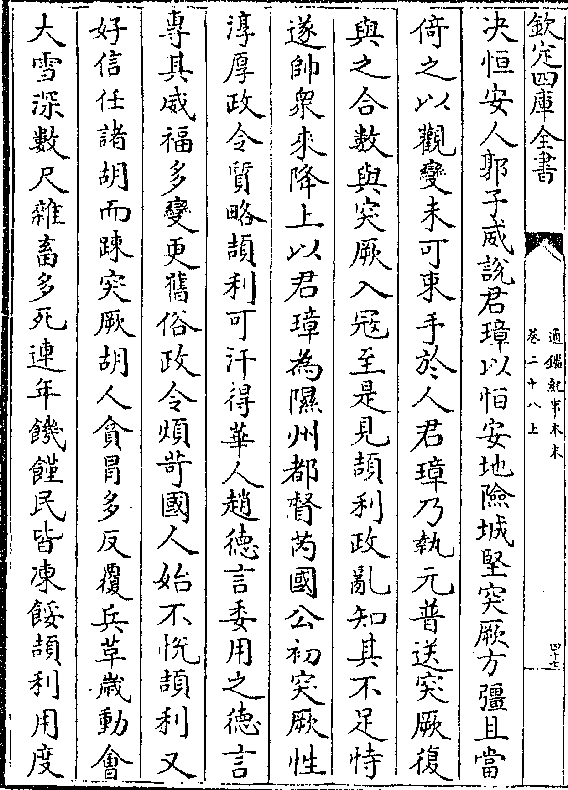 欽定四庫全書
通鑑紀事本末
卷二十八上
四十七
决恒安人郭子威說君璋以恒安地險城堅突厥方彊且當
倚之以觀變未可束手於人君璋乃執元普送突厥復
與之合數與突厥入寇至是見頡利政亂知其不足恃
遂帥衆來降上以君璋為隰州都督芮國公初突厥性
淳厚政令質略頡利可汗得華人趙德言委用之德言
專其威福多變更舊俗政令煩苛國人始不悅頡利又
好信任諸胡而踈突厥胡人貪冒多反覆兵革歲動會
大雪深數尺雜畜多死連年饑饉民皆凍餒頡利用度